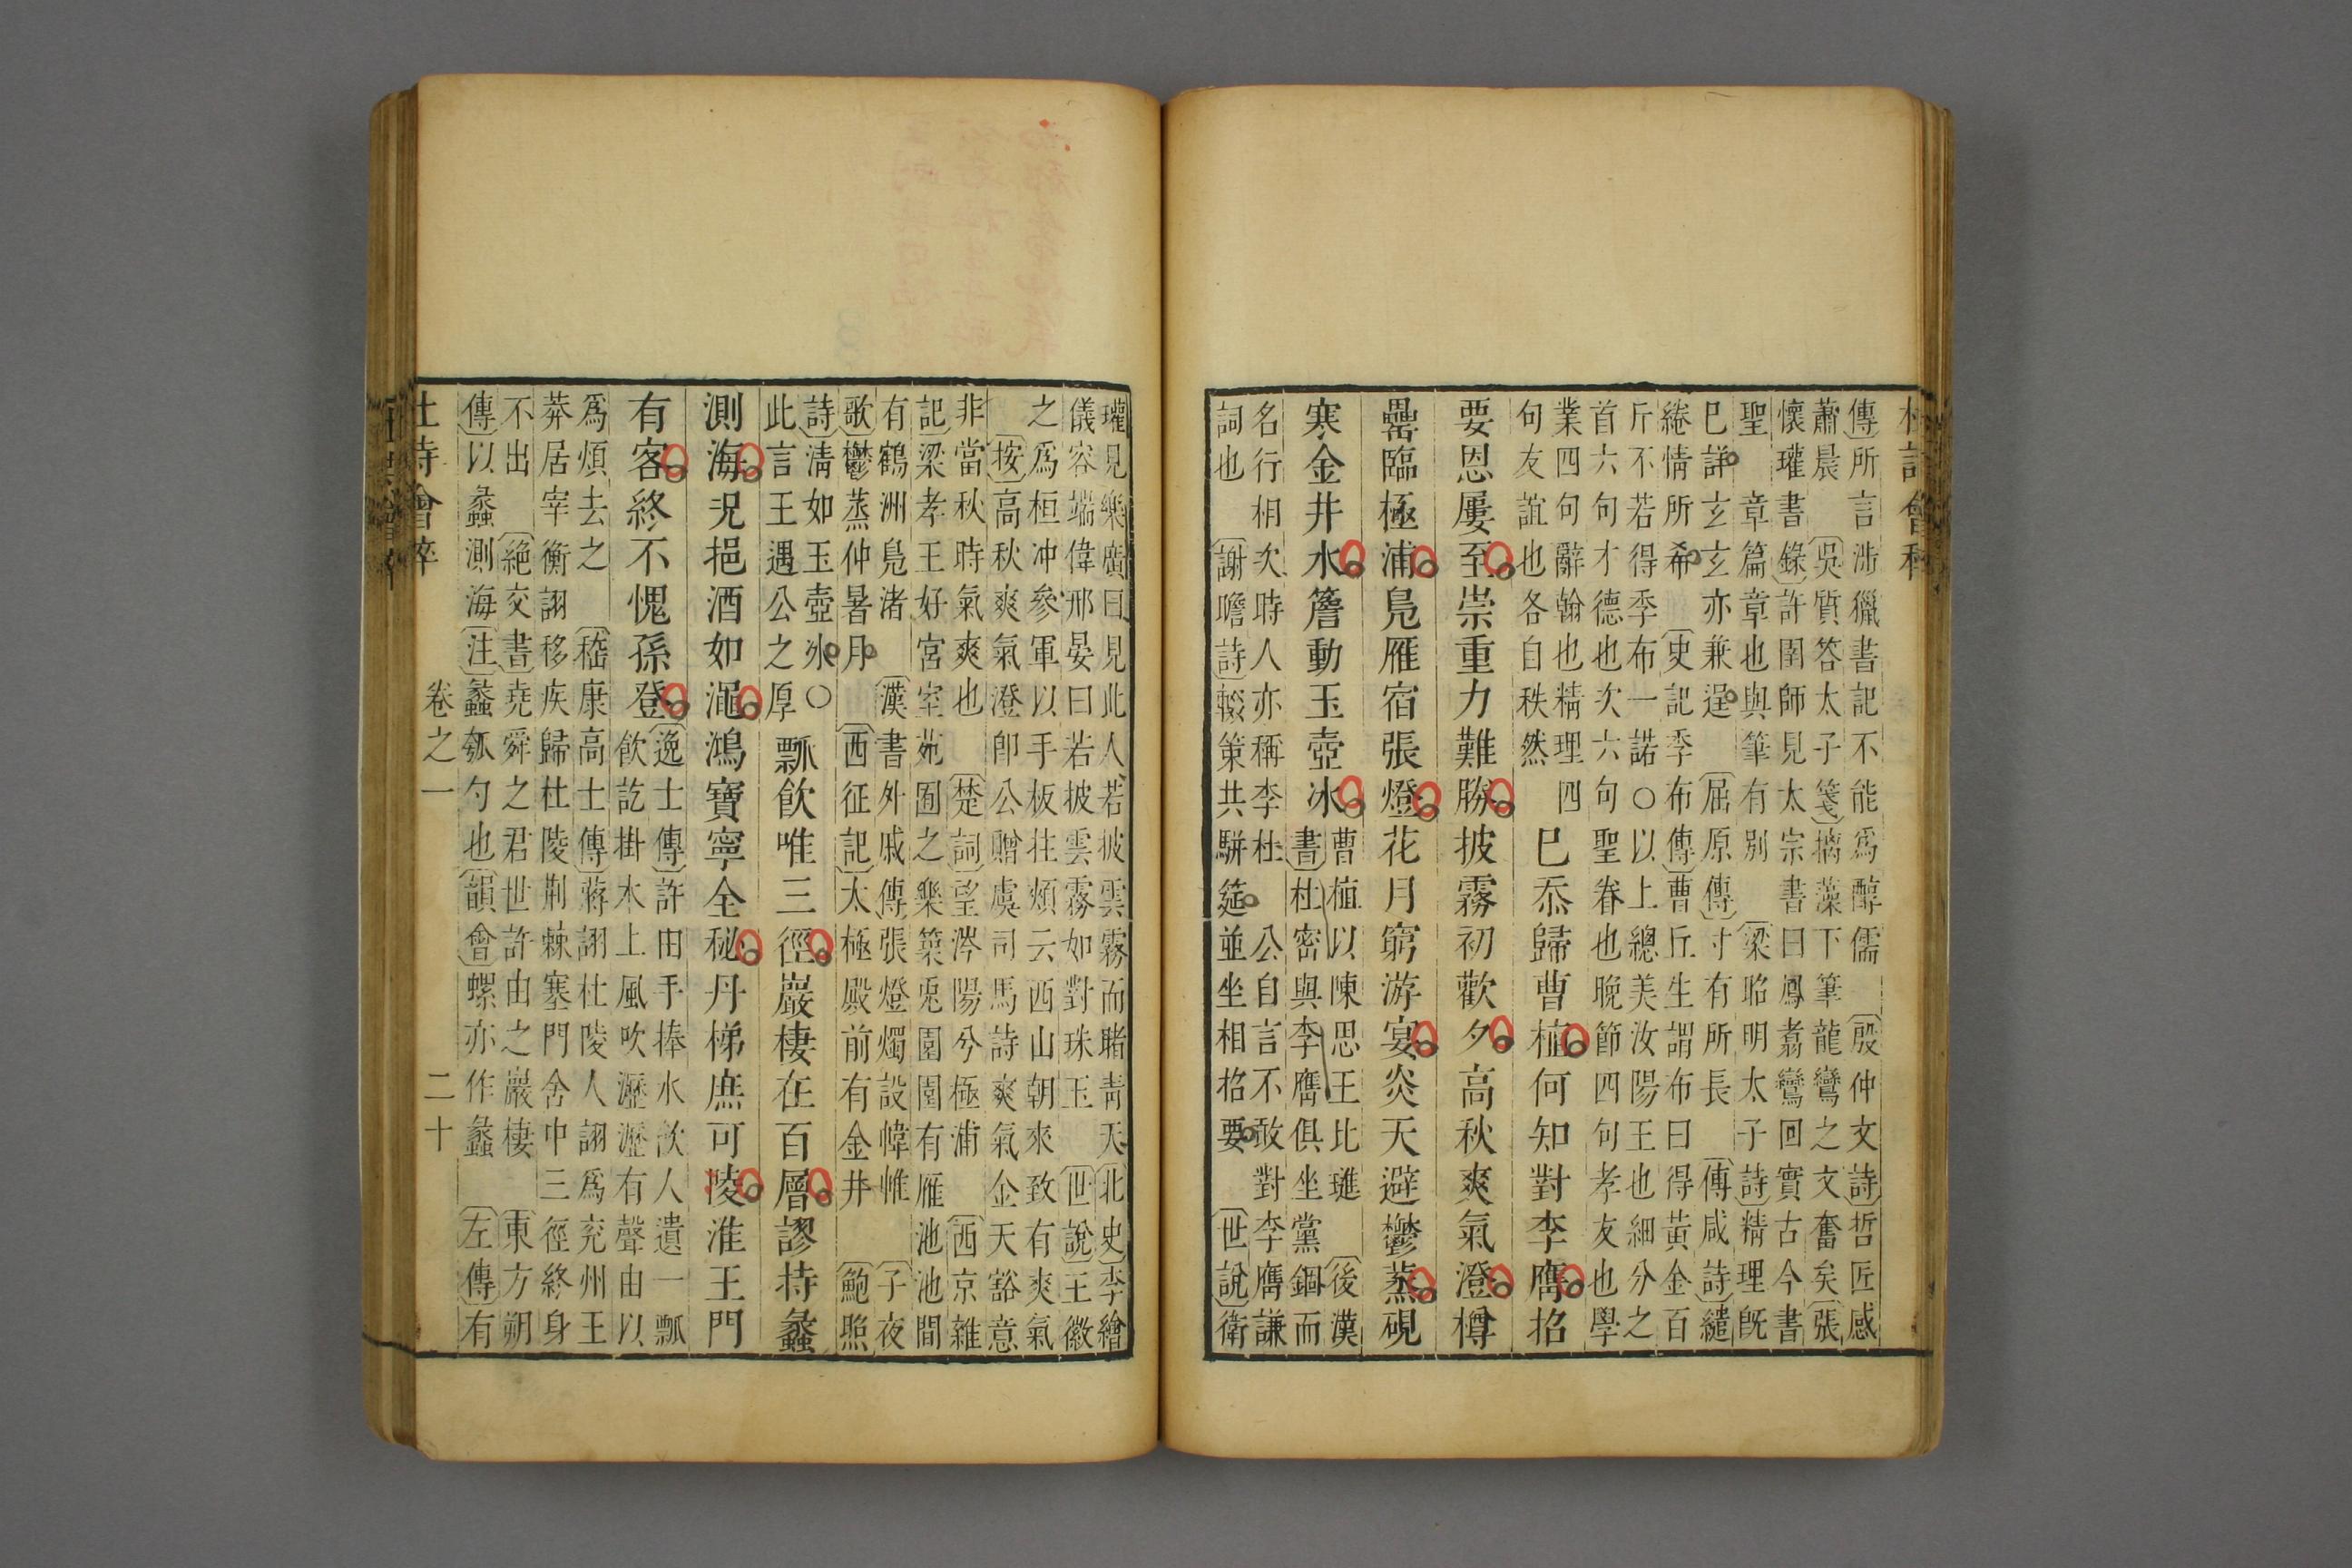 傳所言涉獵書記不能爲醇儒 殷仲文詩哲匠感
蕭晨 吳質答太子箋摛藻下筆龍鸞之文奮矣 張
懷瓘書錄許圉師見太宗書曰鳳翥鸞回實古今書
聖 章篇章也與筆有別 梁昭明太子詩精理旣
巳詳玄玄亦兼逞 屈原傳寸有所長 傳咸詩繾
綣情所希 史記季布傳曹丘生謂布曰得黃金百
斤不若得季布一諾○以上總美汝陽王也細分之
首六句才德也次六句聖眷也晚節四句孝友也學
業四句辭翰也精理四
句友誼也各自秩然
巳忝歸曹植何知對李膺招
要恩屢至崇重力難勝披霧初歡夕高秋爽氣澄樽
罍臨極浦鳧雁宿張燈花月窮游宴炎天避鬱蒸硯
寒金井水簷動玉壺冰
曹植以陳思王比璡 後漢
書杜密與李膺俱坐黨錮而
名行相次時人亦稱李杜 公自言不敢對李膺謙
詞也 謝瞻詩輟策共駢筵並坐相招要 世說衛
瓘見樂廣曰見此人若披雲霧而睹靑天 北史李繪
儀容端偉邢晏曰若披雲霧如對珠玉 世說王徽
之爲桓冲參軍以手板拄頰云西山朝來致有爽氣
按高秋爽氣澄卽公贈虞司馬詩爽氣金天豁意
非當秋時氣爽也 楚詞望涔陽兮極浦 西京雜
記梁孝王好宮室苑囿之樂築兎園園有雁池池間
有鶴洲鳧渚 漢書外戚傳張燈燭設幃帷 子夜
歌鬱蒸仲暑月 西征記太極殿前有金井 鮑照
詩淸如玉壺冰○
此言王遇公之厚
瓢飲唯三徑巖棲在百層謬持蠡
測海況挹酒如澠鴻寶寧全秘丹梯庶可陵淮王門
有客終不愧孫登
逸士傳許由手捧水飲人遺一瓢
飲訖掛木上風吹瀝瀝有聲由以
爲煩去之 嵇康高士傳蔣詡杜陵人詡爲兖州王
莽居宰衡詡移疾歸杜陵荆棘塞門舍中三徑終身
不出 絕交書堯舜之君世許由之巖棲 東方朔
傳以蠡測海注蠡瓠勺也 韻會螺亦作蠡 左傳有
卷之一 二十